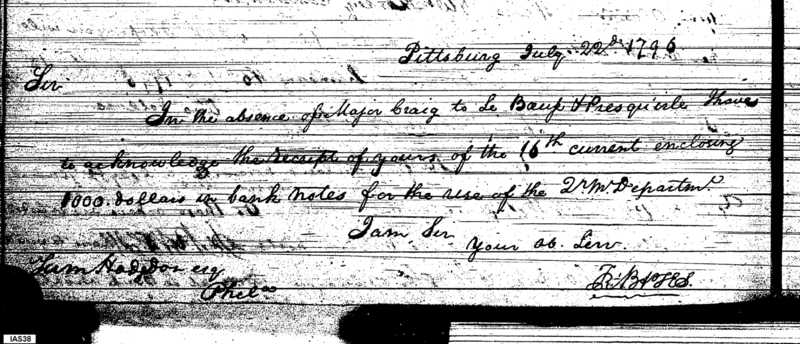 Pittsburg July 22d 1796
Sir
In the absence of Major Craig to Le Bœuf & Presqu'isle I have
to acknowledge the receipt of yours of the 16th current enclosing
1000 dollars in bank notes for the use of the Qr Mr Departmt.
I am Sir
Your ob. Serv
Sam Hodgdon esq
Phila
IAS38